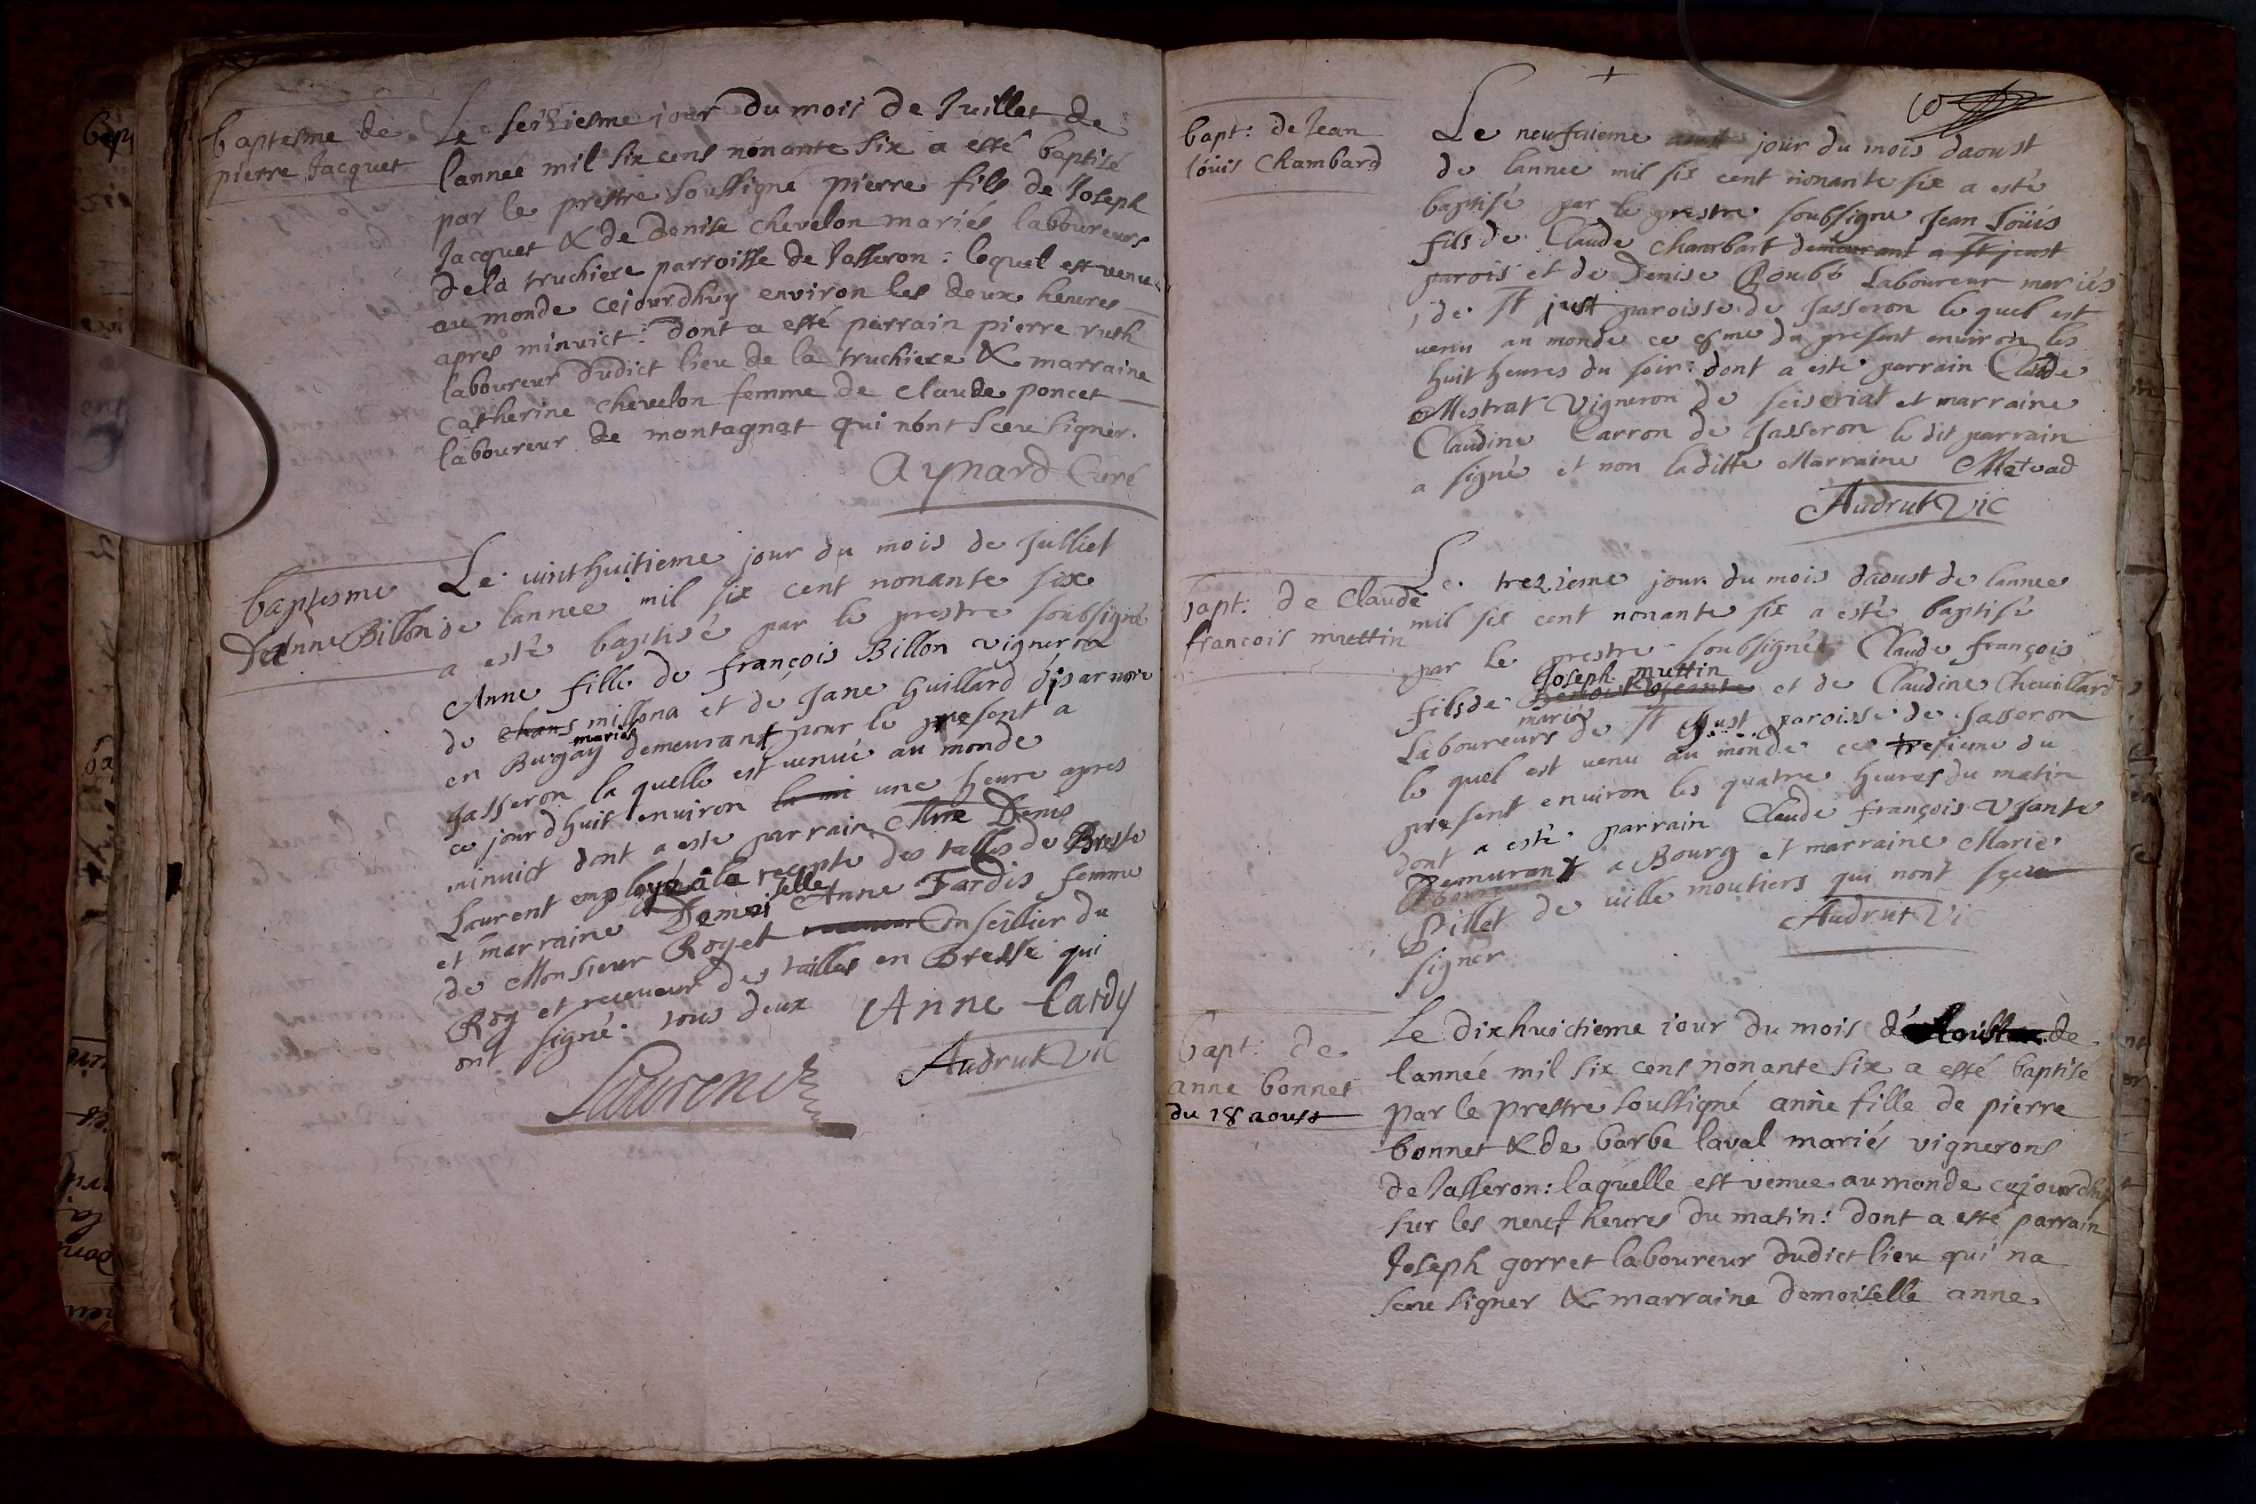 baptesme de
pierre Jacquet
Le seiziesme jour du mois de Juillet de
lanneé mil six cens nonante six a esté baptisé
par le prestre soussigné pierre fils de Joseph
Jacquet & de denise chevelon mariés laboureurs
de la truchiere parroisse de Jasseron : lequel est venu
au monde cejourdhuy environ les deux heures
apres minuict : dont a esté parrain pierre ruth
laboureur dudict lieu de la truchiere & marraine
catherine chevelon femme de claude poncet
laboureur de montagnat qui nont sceu signer.
Aynard Curé
baptesme
de Anne Billon
Le vinthuitieme jour du mois de Julliet
de lannee mil six cent nonante six
a esté baptisé par le prestre soubsigné
Anne fille de françois Billon vigneron
de chans millona et de Jane huillard disarnore
mariés
en Bugay demeurant pour le present a
Jasseron la quelle est venuë au monde
ce jourdhuit environ la mi une heure apres
minuict dont a esté parrain Mre Denis
Laurent employé a la recepte des tallies de Bresse
et marraine Demoiselle Anne Tardis femme
de Monsieur Roget Conseillier du
Roy et receveur des tailles en Bresse qui
ont signé tous deux Anne tardy
Laurend
Audrut Vic
bapt : de Jean
loüis Chambard
Le neufvieme jour du mois daoust
de lannee mil six cent nonante six a esté
baptisé par le prestre soubsigne Jean Loüis
fils de Claude Chambart demeurant a st just
parois et de Denise Roubb Laboureur mariés
de st just paroisse de Jasseron le quel est
venu au monde ce 8me du present environ les
huit heures du soir : dont a esté parrain Claude
Mestrat vigneron de seiseriat et marraine
Claudine Carron de Jasseron le dit parrain
a signé et non laditte Marraine Metvad
Audrut Vic
bapt : de Claude
francois muttin
Le trezieme jour du mois daoust de lannee
mil six cent nonante six a esté baptisé
par le prestre soubsigné Claude françois
Joseph muttin
fils de et de Claudine Cheuillard
mariés
Laboureurs de st Just paroisse de Jasseron
le quel est venu au monde ce tresieme du
present environ les quatre heures du matin
dont a esté parrain Claude françois Vsante
Demurant a Bourg et marraine Marie
Pillet de ville moutiers qui nont sçeu
signer
Audrut Vic
bapt : de
anne bonnet
du 18 aoust
Le dixhuictieme iour du mois de
lanneé mil six cens nonante six a esté baptisé
par le prestre soussigné anne fille de pierre
bonnet & de barbe laval mariés vignerons
de Jasseron : laquelle est venue au monde cejourdhuy
sur les neuf heures du matin : dont a esté parrain
Joseph gorret laboureur dudict lieu qui na
sceu signer & marraine demoiselle anne